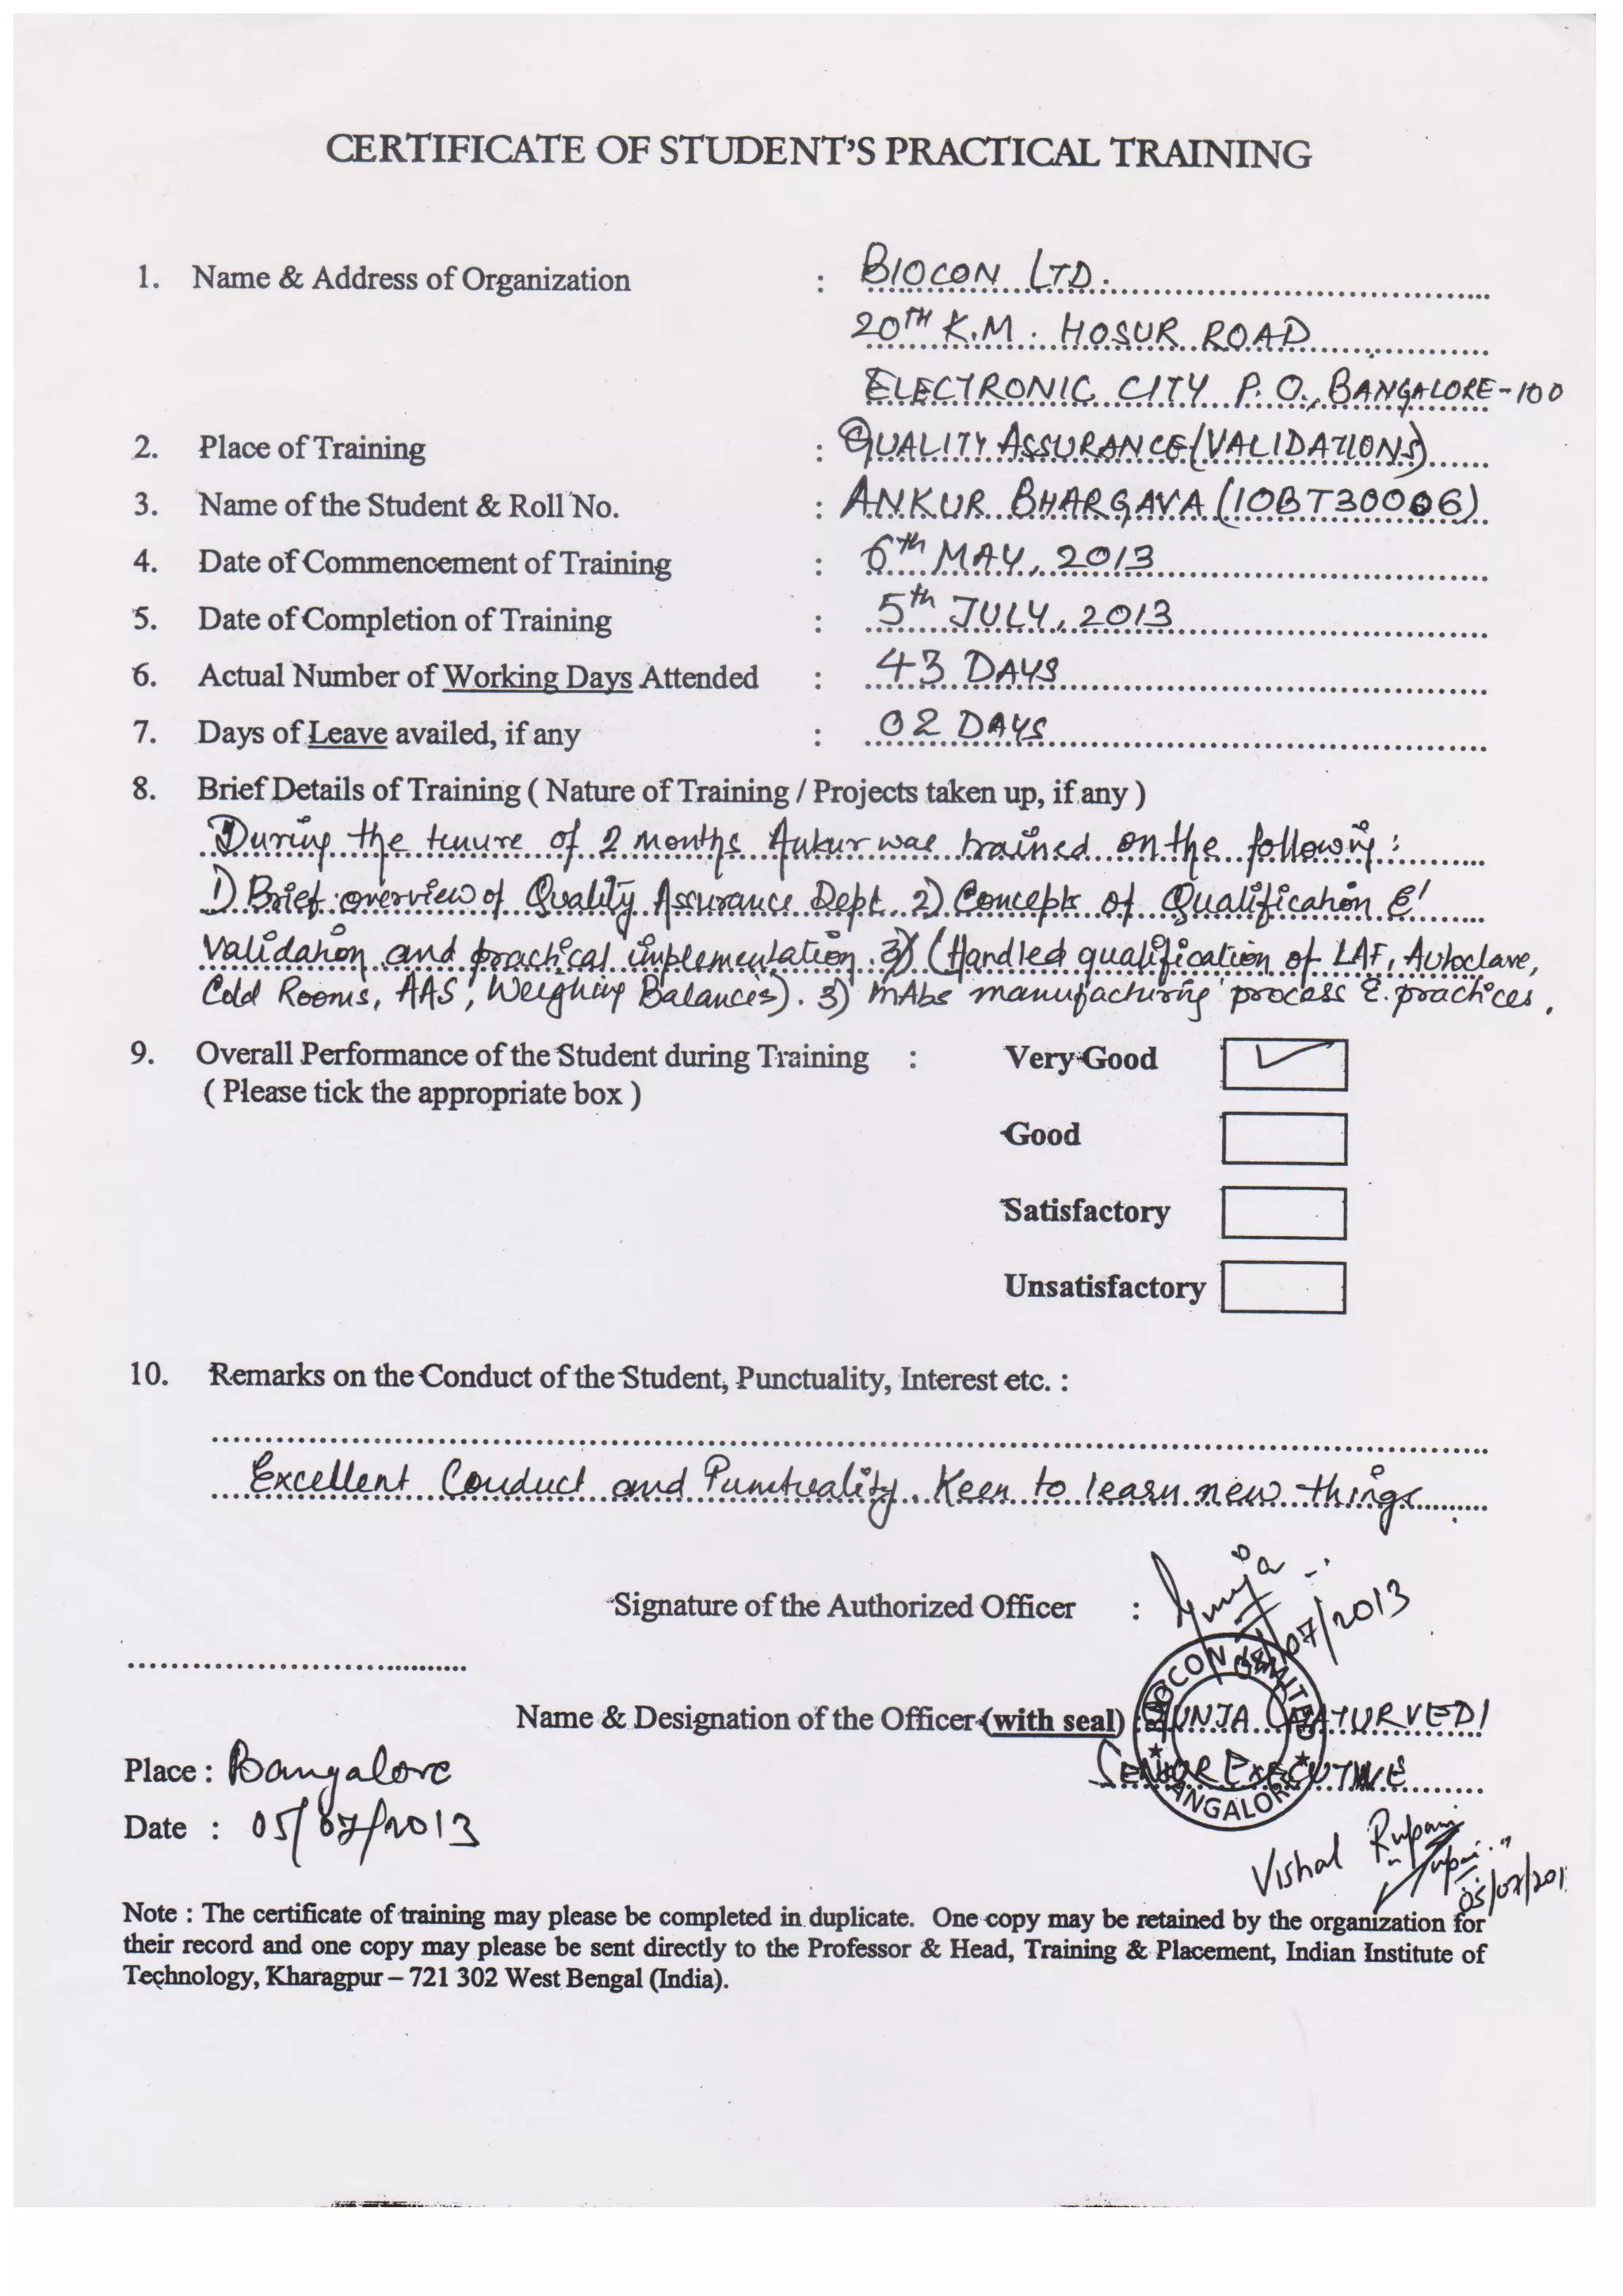 CERTIFICATE OF STUDENT'S PRACTICAL TRAINING
1. Name & Address of Organization : BIOCON LTD.
20TH K.M. HOSUR ROAD
ELECTRONIC CITY P.O., BANGALORE-100
2. Place of Training : QUALITY ASSURANCE (VALIDATIONS)
3. Name of the Student & Roll No. : ANKUR BHARGAVA (10BT30006)
4. Date of Commencement of Training : 6th MAY, 2013
5. Date of Completion of Training : 5th JULY, 2013
6. Actual Number of Working Days Attended : 43 DAYS
7. Days of Leave availed, if any : 02 DAYS
8. Brief Details of Training ( Nature of Training / Projects taken up, if any )
During the tenure of 2 months Ankur was trained on the following :
1) Brief overview of Quality Assurance Dept. 2) Concepts of Qualification &
Validation and practical implementation. (Handled qualification of LAF, Autoclave,
Cold Rooms, AAS, Weighing Balances). 3) mAbs manufacturing process & practices.
9. Overall Performance of the Student during Training : Very Good
( Please tick the appropriate box )
Good
Satisfactory
Unsatisfactory
10. Remarks on the Conduct of the Student, Punctuality, Interest etc. :
Excellent Conduct and Punctuality. Keen to learn new things.
Signature of the Authorized Officer :
07/2013
BIOCON LIMITED
Name & Designation of the Officer (with seal) : GUNJA CHATURVEDI
Place : Bangalore
SENIOR EXECUTIVE
BANGALORE
Date : 05/07/2013
Vishal Rupani
05/07/201
Note : The certificate of training may please be completed in duplicate. One copy may be retained by the organization for
their record and one copy may please be sent directly to the Professor & Head, Training & Placement, Indian Institute of
Technology, Kharagpur – 721 302 West Bengal (India).